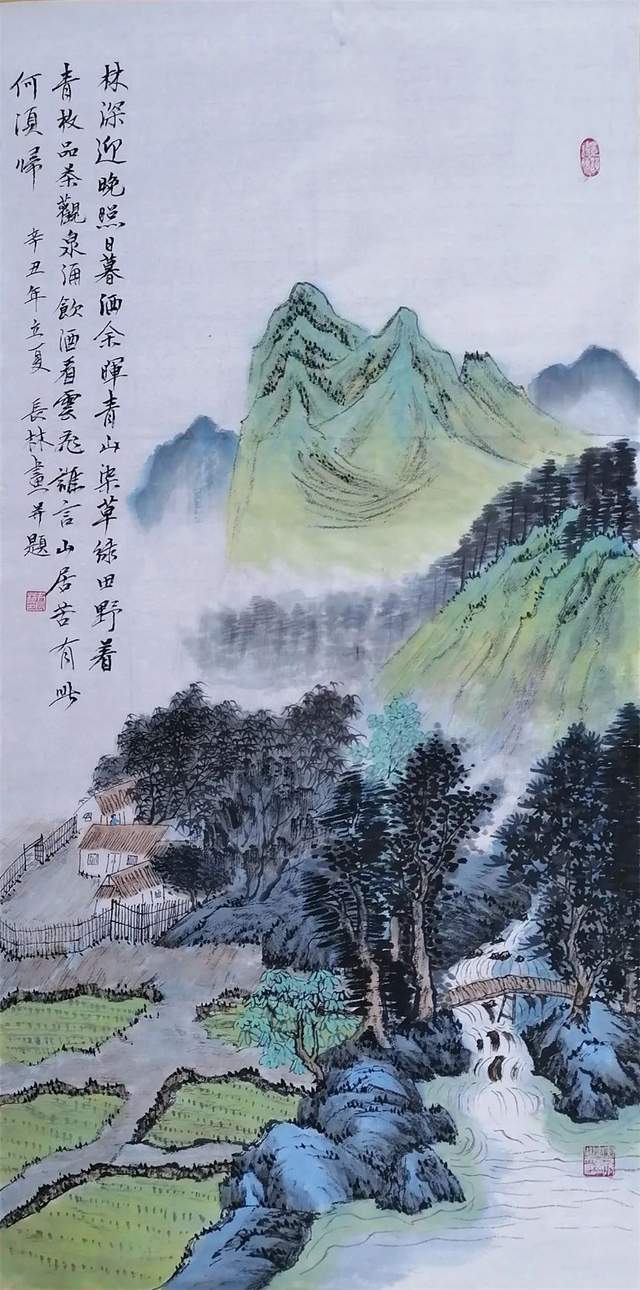 林深迎晚照日暮洒余暉青山染草绿田野着
青枚品茶觀泉涌飲酒看雲飛誰言山居苦有此
何須帰 辛丑年立夏 長林畫并題